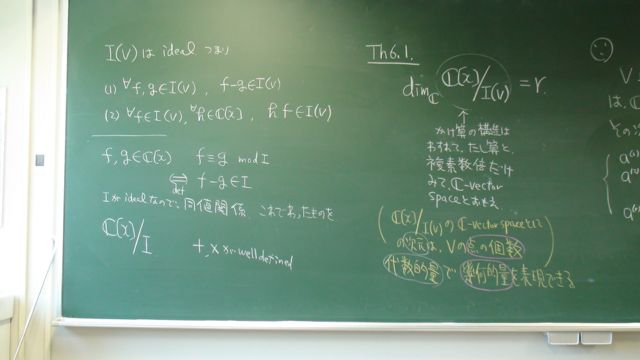 I(V) は ideal つまり
(1) ∀f,g∈I(V), f-g∈I(V)
(2) ∀f∈I(V), ∀h∈ℂ[x], hf∈I(V)
f,g∈ℂ[x] f≡g mod I
⇔ def f-g∈I
Iがidealなので、同値関係 これでわったものを
ℂ[x]/I +,× が well defined
Th6.1.
dim_ℂ ℂ[x]/I(V) = r.
↑
かけ算の構造は
わすれて、たし算と、
複素数倍だけ
みて、ℂ-vector
spaceとおもえ
(ℂ[x]/I(V)の ℂ-vector spaceとして
の次元は、Vの点の個数)
代数的量で 幾何的量を表現できる
V
は、ℂ
その
a
a
a